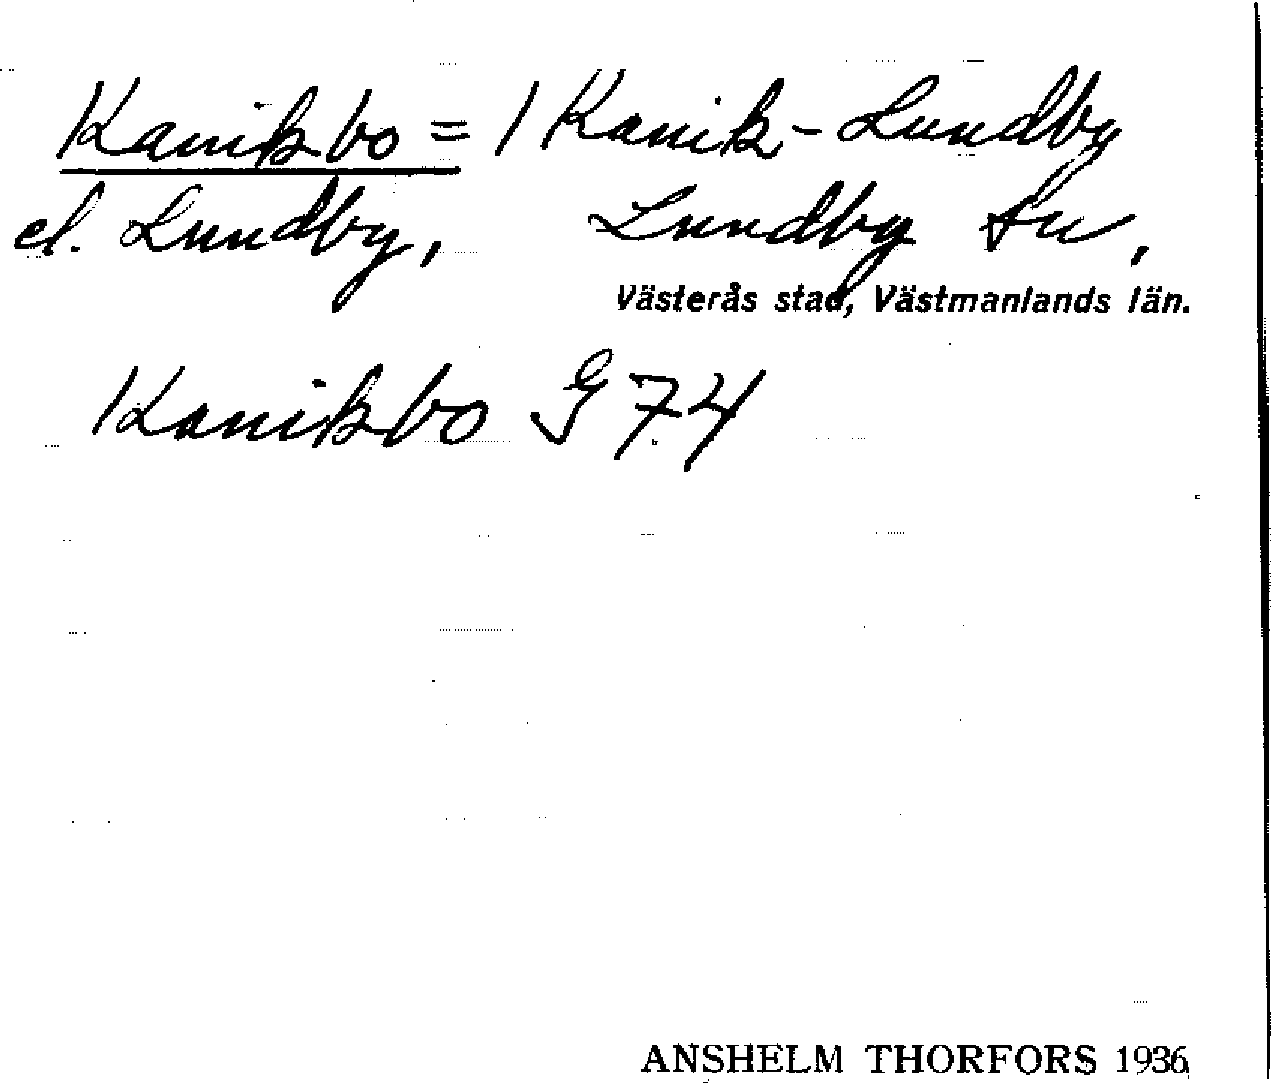 Kanikbo = / Kanik-Lundby
el. Lundby, Lundby sn,
Västerås stad, Västmanlands län.
Kanikbo G 74
ANSHELM THORFORS 1936